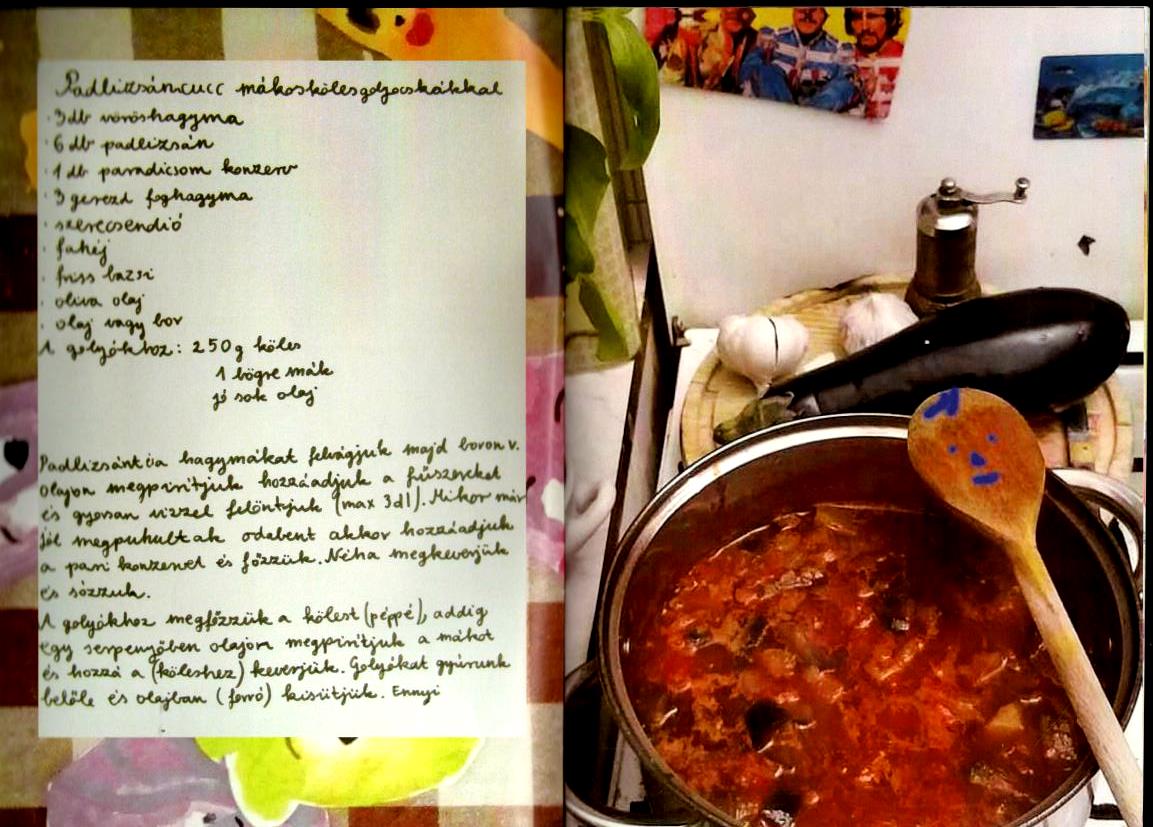 Padlizsáncucc mákoskölesgolyócskákkal
· 3 db vöröshagyma
· 6 db padlizsán
· 1 db paradicsom konzerv
· 3 gerezd foghagyma
· szerecsendió
· fahéj
· friss bazsi
· oliva olaj
· olaj vagy bor
A golyókhoz: 250g köles
1 bögre mák
jó sok olaj
Padlizsánt és a hagymákat felvágjuk majd boron v.
olajon megpirítjuk hozzáadjuk a fűszereket
és gyorsan vízzel felöntjük (max 3dl). Mikor már
jól megpuhultak odabent akkor hozzáadjuk
a pari konzervet és főzzük. Néha megkeverjük
és sózzuk.
A golyókhoz megfőzzük a kölest (péppé), addig
egy serpenyőben olajon megpirítjuk a mákot
és hozzá a (köleshez) keverjük. Golyókat gyúrunk
belőle és olajban (forró) kisütjük. Ennyi